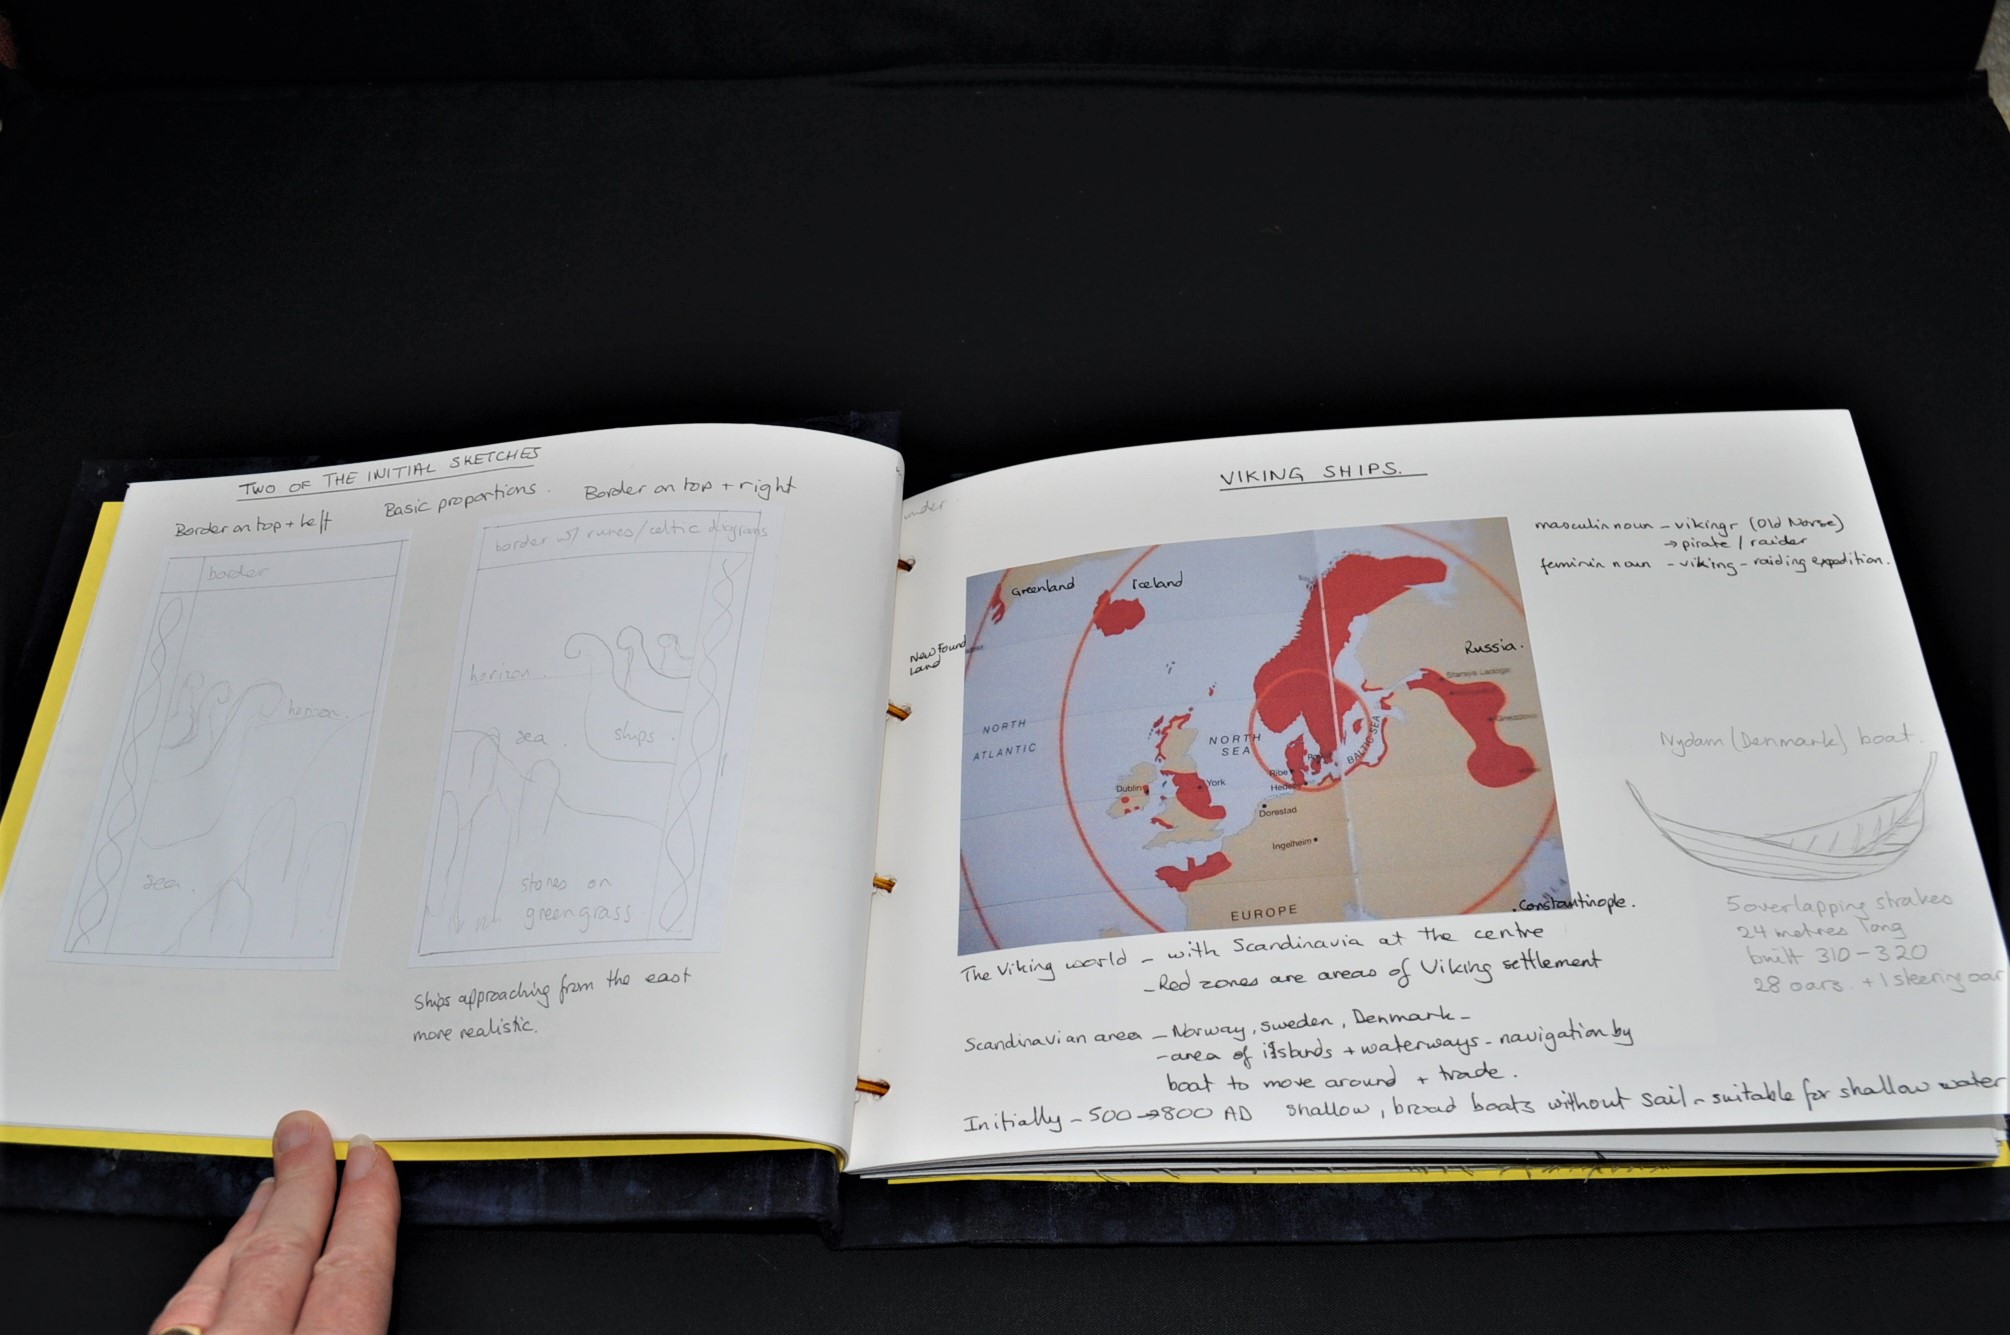 TWO OF THE INITIAL SKETCHES
Border on top + left
Basic proportions.
Border on top + right
border
horizon.
sea.
border w/ runes/celtic diagrams
horizon.
sea.
ships.
stones on
green grass
Ships approaching from the east
more realistic.
under
VIKING SHIPS.
masculin noun - vikingr (Old Norse)
→ pirate / raider
feminin noun - viking - raiding expedition.
Greenland
Iceland
New Found
Land
Russia.
Staraya Ladoga
NORTH
ATLANTIC
NORTH
SEA
BALTIC SEA
Ribe
Dublin
York
Dorestad
Ingelheim
EUROPE
. Constantinople.
Nydam (Denmark) boat.
5 overlapping strakes
24 metres long
built 310 - 320
28 oars. + 1 steering oar
The Viking world - with Scandinavia at the centre
- Red zones are areas of Viking settlement
Scandinavian area - Norway, sweden, Denmark -
- area of islands + waterways - navigation by
boat to move around + trade.
Initially - 500 → 800 AD shallow, broad boats without sail - suitable for shallow water